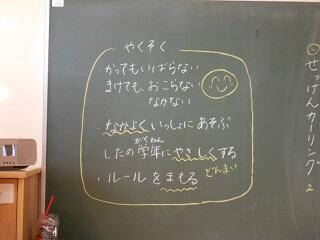 やくそく
・かってもいばらない
まけても、おこらない
なかない
・なかよくいっしょにあそぶ
・したの学年にやさしくする
がくねん
・ルールをまもる
どんまい
せっけんカーリング